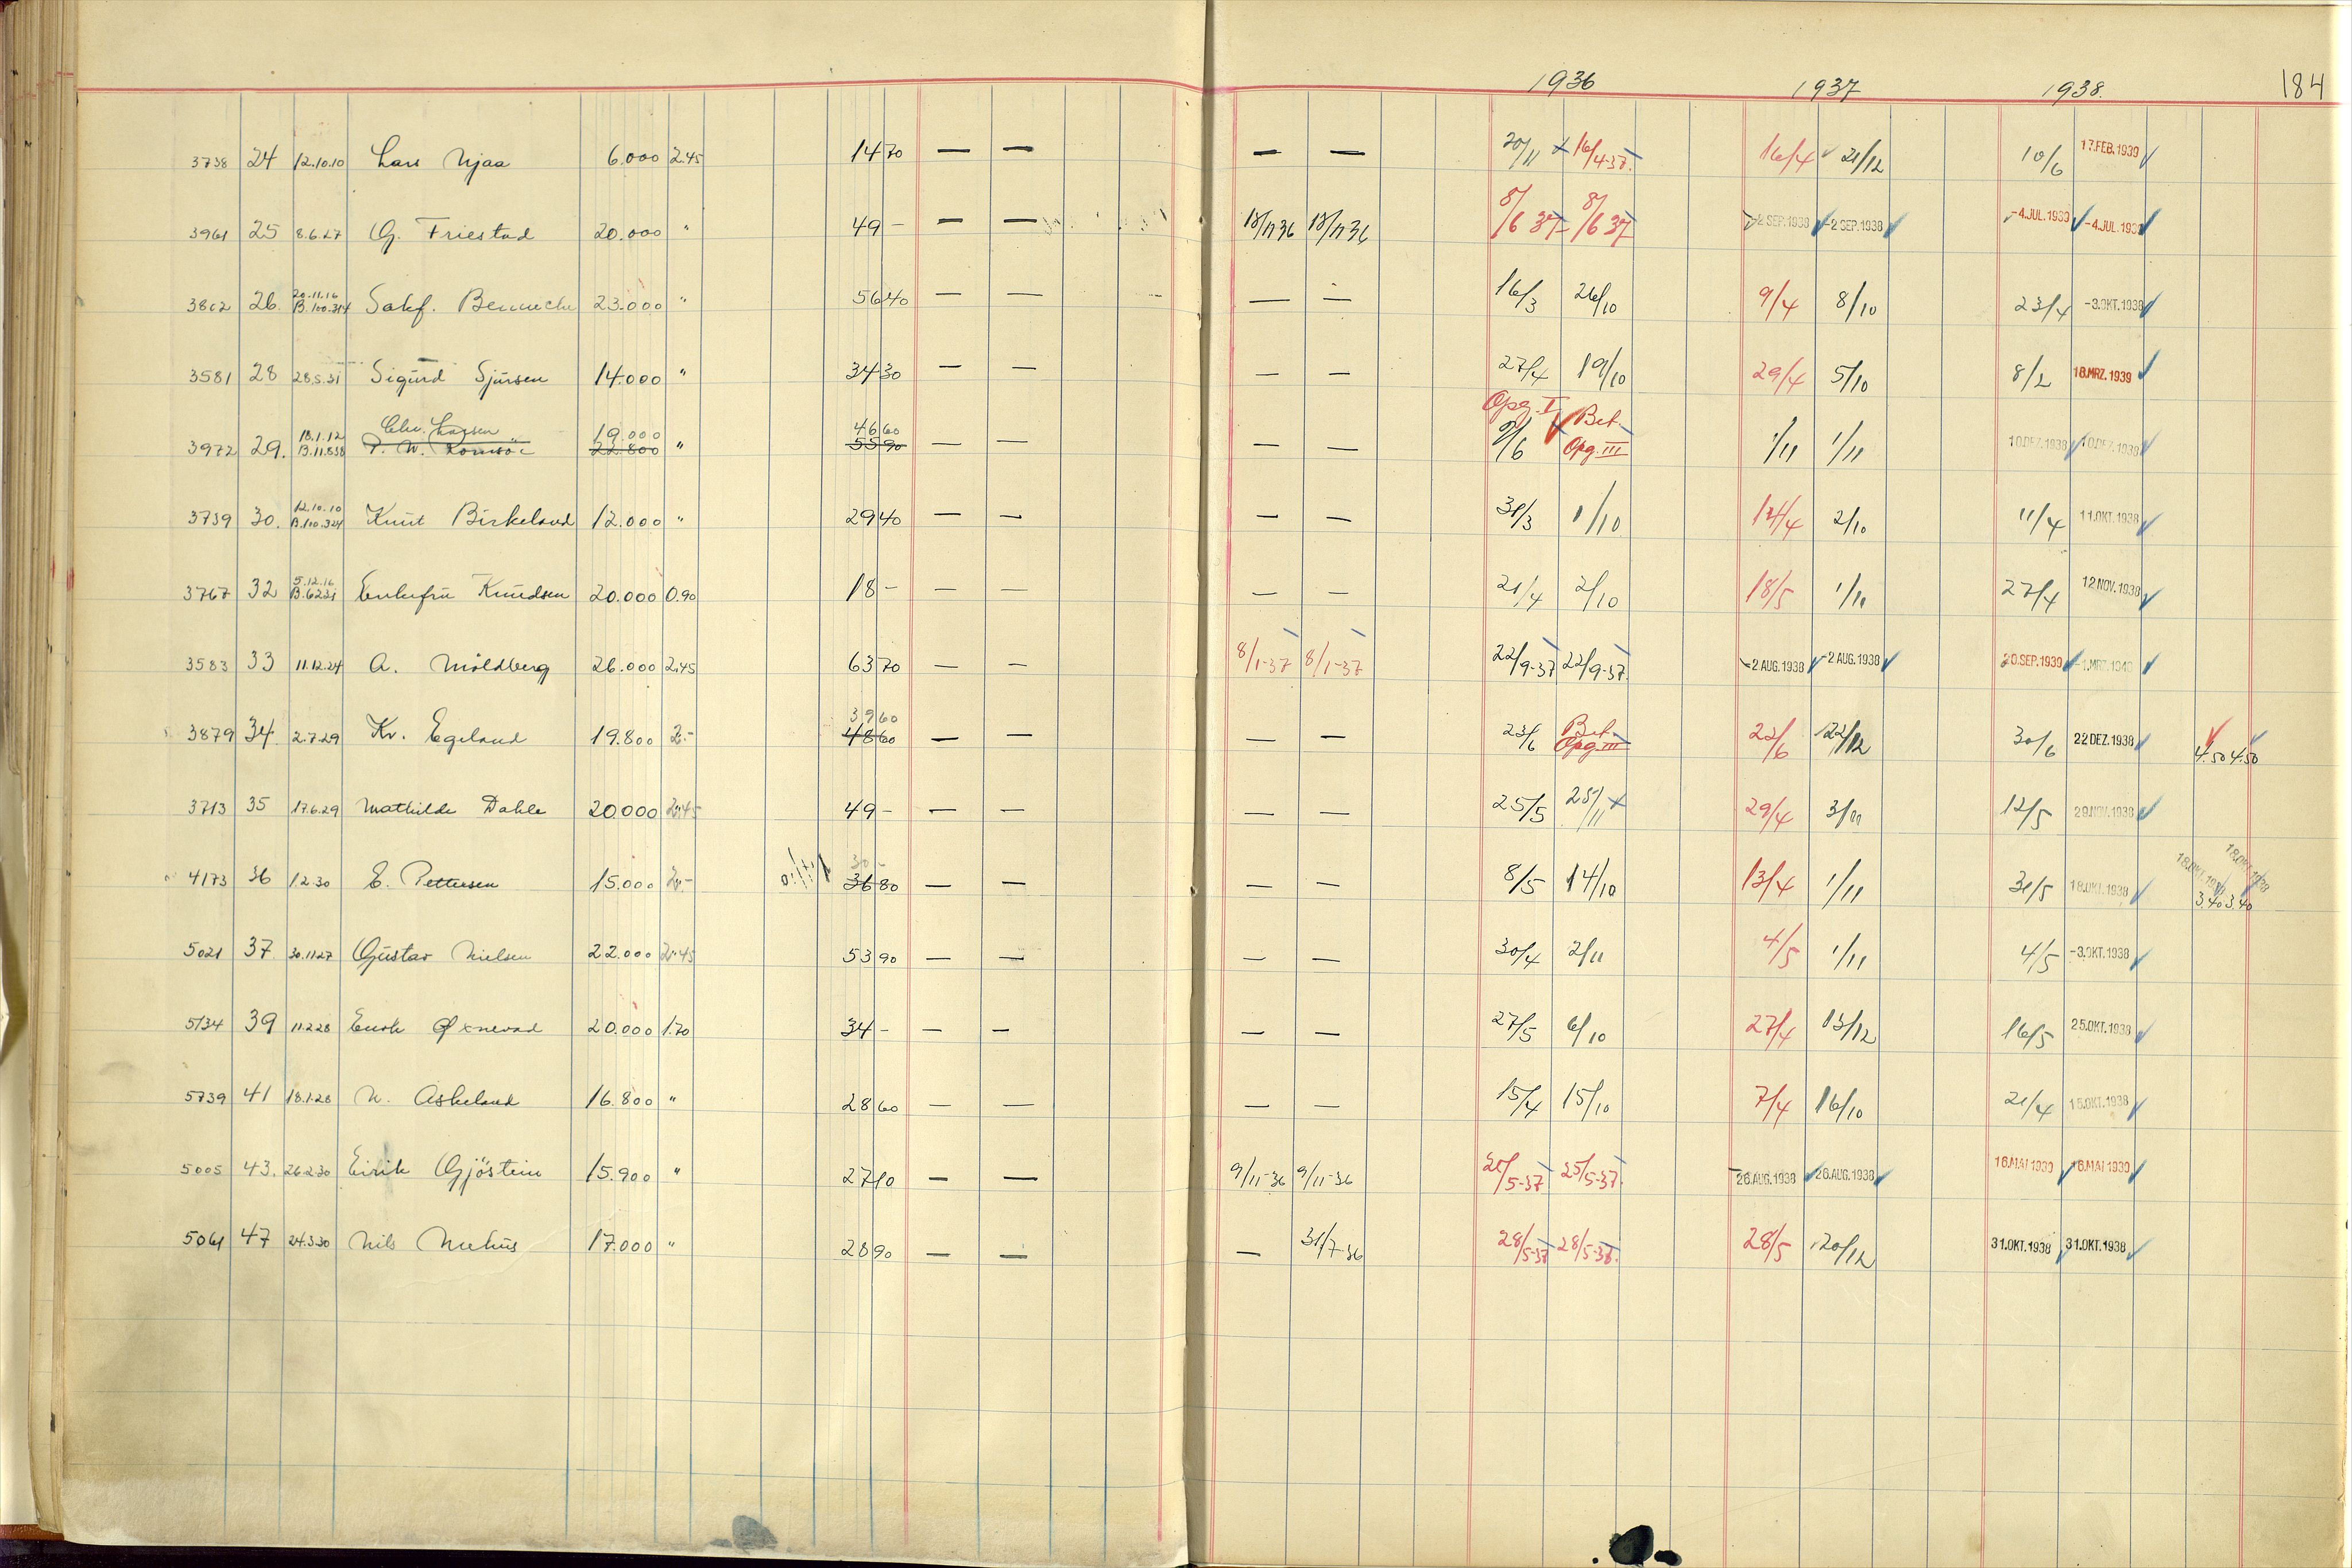 1936 1937 1938. 184
3738 24 12.10.10 Lars Njaa 6.000 2.45 14 70 — — — — 20/11 x 16/4-37. 16/4 21/12 10/6 17.FEB.1939
3961 25 8.6.27 G. Friestad 20.000 " 49 - — — 18/11 36 18/11 36 8/6 37 8/6 37 -2 SEP.1938 -2 SEP.1938 -4.JUL.1939 -4.JUL.1939
20.11.16
3862 26. B.100.314 Sakf. 23.000 " 56 40 — — — — 16/3 26/10 9/4 8/10 23/4 -3.OKT.1938
3581 28 28.5.31 Sigurd Sjursen 14.000 " 34 30 — — — — 27/4 19/10 29/4 5/10 8/2 18.MRZ.1939
18.1.12 Chr. Larsen 19.000 46 60 Opg. I Bet.
3972 29. B.11.838 P. W. 22.800 " 55 90 — — — — 9/6 Opg. III 1/11 1/11 10.DEZ.1938 10.DEZ.1938
12.10.10
3739 30. B.100.324 Knut Birkeland 12.000 " 29 40 — — — — 31/3 1/10 14/4 2/10 11/4 11.OKT.1938
5.12.16
3767 32 B.6221 Enkefru Knudsen 20.000 0.90 18 - — — — — 21/4 2/10 18/5 1/11 27/4 12.NOV.1938
3583 33 11.12.24 A. Moldberg 26.000 2.45 63 70 — — 8/1-37 8/1-37 22/9-37 22/9-37. -2.AUG.1938 -2 AUG.1938 20.SEP.1939 -1.MRZ.1940
39 60
3879 34 2.7.29 Kr. Egeland 19.800 2.- 48 60 — — — — 23/6 Bet. Opg. III 22/6 22/12 30/6 22 DEZ.1938 4.50 4.50
3713 35 17.6.29 Mathilde Dahle 20.000 2.45 49 - — — — — 25/5 28/11 x 29/4 12/5 29.NOV.1938
30 - 18.OKT.1938 18.OKT.1938
4173 36 1.2.30 E. Pettersen 15.000 2.- 36 80 — — — — 8/5 14/10 13/4 1/11 31/5 18.OKT.1938 3.40 3.40
5021 37 30.11.27 Gustav Nielsen 22.000 2.45 53 90 — — — — 30/4 2/11 4/5 1/11 4/5 -3.OKT.1938
5134 39 11.2.28 Enok Øxnevad 20.000 1.70 34 - — — — — 27/5 6/10 27/4 13/12 16/5 25.OKT.1938
5739 41 18.1.28 N. Askeland 16.800 " 28 60 — — — — 15/4 15/10 7/4 16/10 21/4 15.OKT.1938
5005 43. 26.2.30 Eirik Gjöstein 15.900 " 27 10 — — 9/11-36 9/11-36 25/5-37 25/5-37. 26.AUG.1938 26.AUG.1938 16.MAI 1939 16.MAI 1939
5061 47 24.3.30 Nils Mehus 17.000 " 28 90 — — — 31/7-36 28/5-37 28/5-37. 28/5 20/12 31.OKT.1938 31.OKT.1938